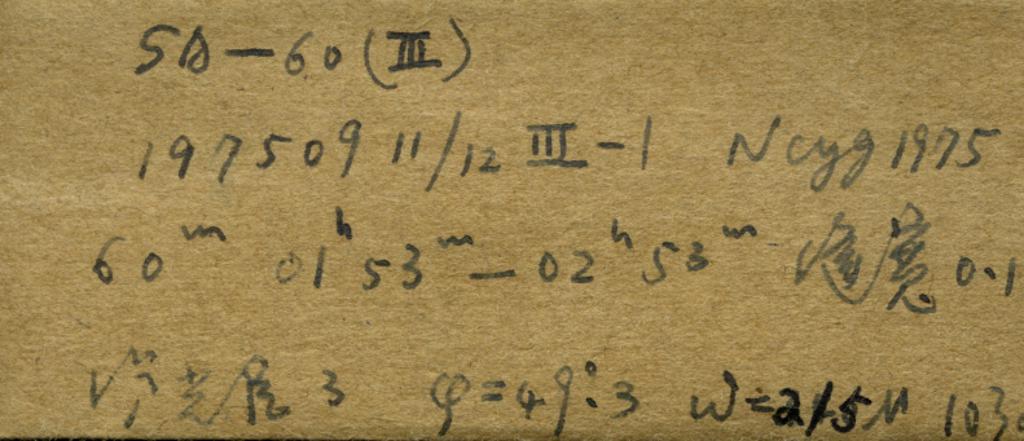 SA-60(III)
19750911/12 III-1 N cyg 1975
60ᵐ 01ʰ53ᵐ-02ʰ53ᵐ 缝宽 0.1
光 3 φ=49°.3 W=215μ 103